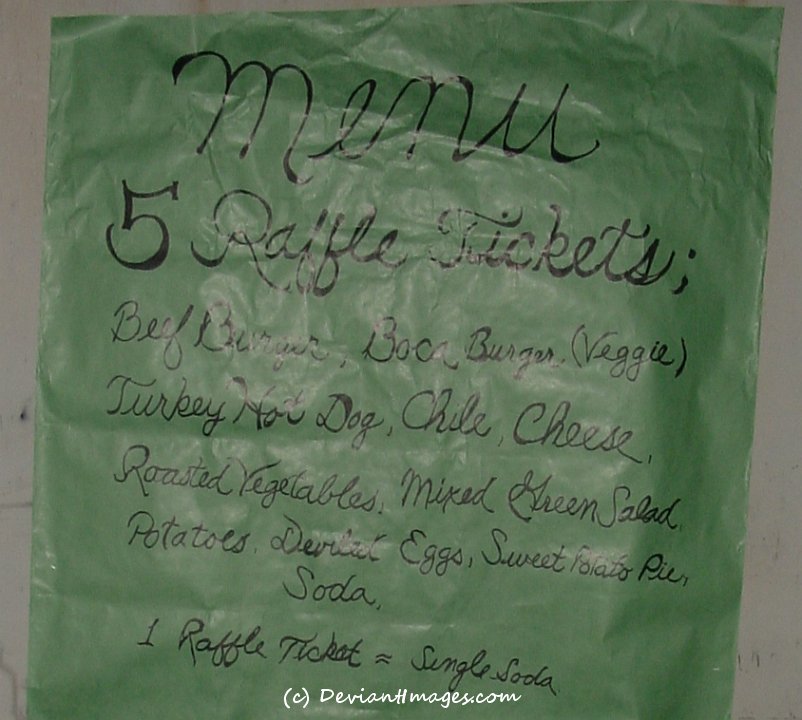 Menu
5 Raffle Tickets;
Beef Burger, Boca Burger, (Veggie)
Turkey Hot Dog, Chile, Cheese,
Roasted Vegetables, Mixed Green Salad,
Potatoes, Deviled Eggs, Sweet Potato Pie,
Soda,
1 Raffle Ticket = Single Soda
(c) DeviantImages.com